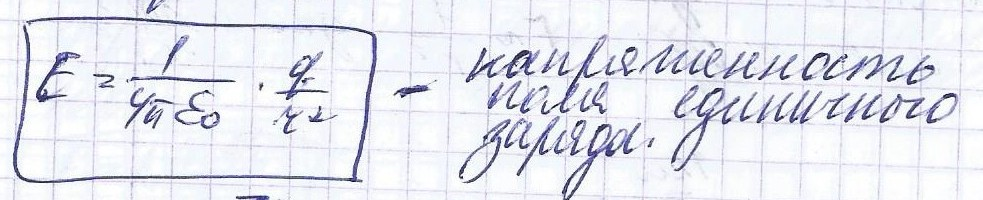 E = 1/4πε₀ · q/r² - напряженность
поля единичного
заряда.